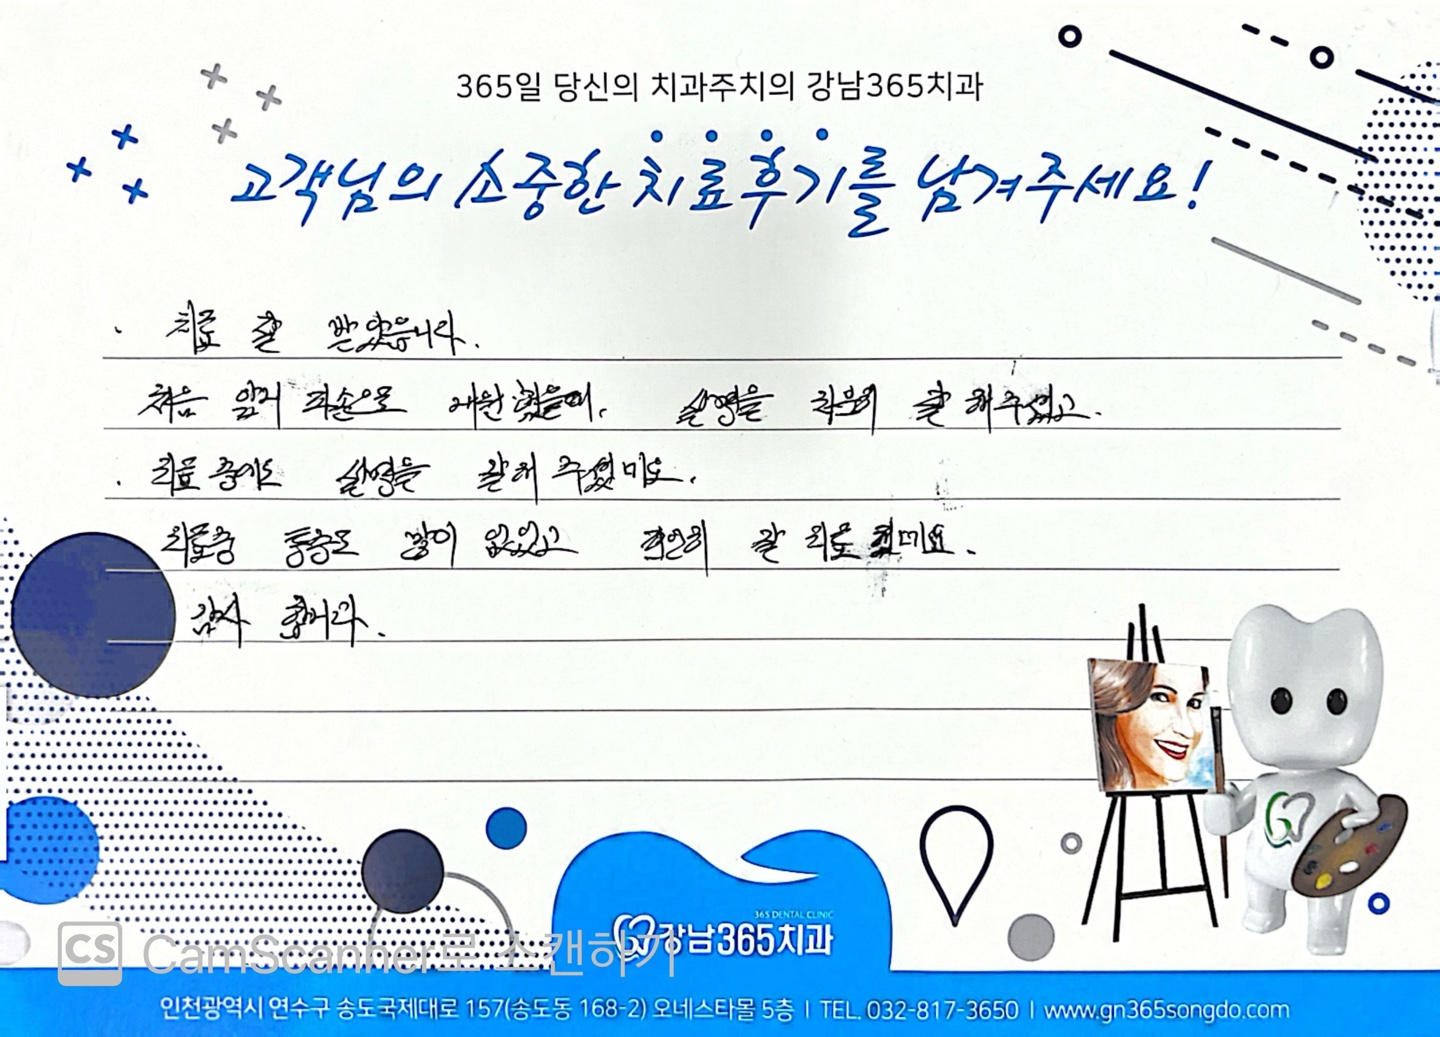 365일 당신의 치과주치의 강남365치과
고객님의 소중한 치료후기를 남겨주세요!
· 치료 잘 받았습니다.
처음 앞니 파손으로 내원했을때, 설명을 차분히 잘 해주셨고.
· 치료 중에도 설명을 잘해 주셨네요.
치료중 통증도 많이 없었고 편안히 잘 치료
감사 합니다.
365 DENTAL CLINIC
강남365치과
CS CamScanner로 스캔하기
인천광역시 연수구 송도국제대로 157(송도동 168-2) 오네스타몰 5층 | TEL. 032-817-3650 | www.gn365songdo.com